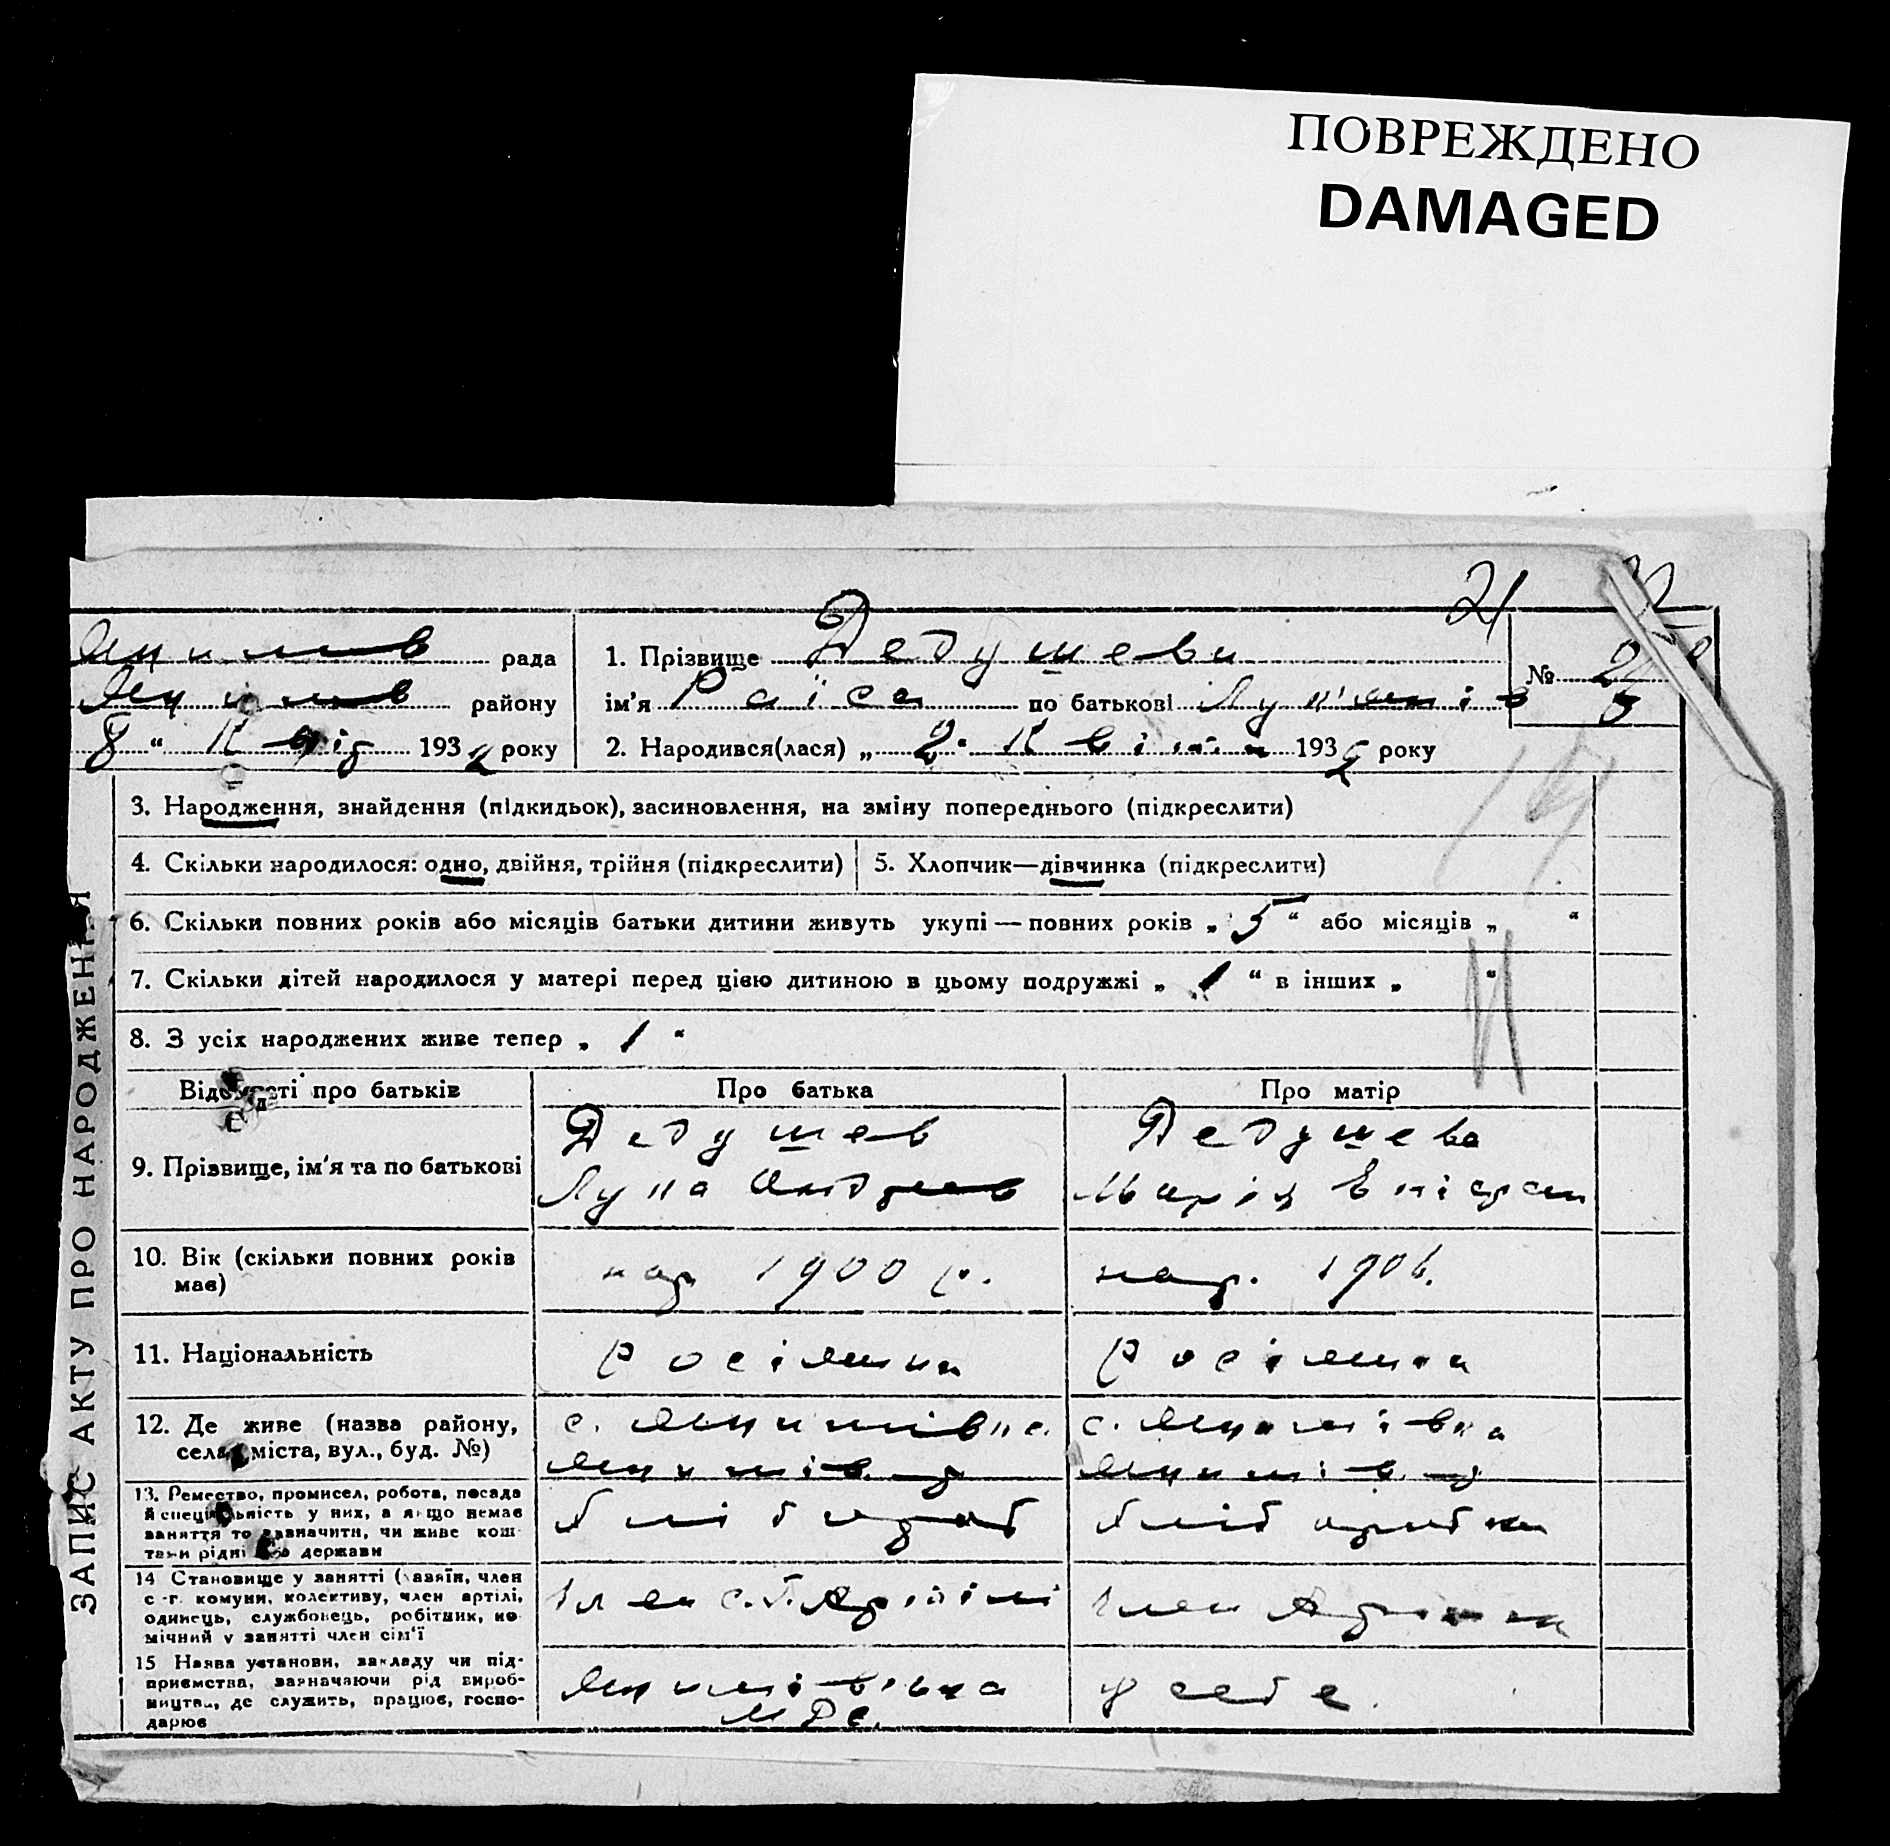 ПОВРЕЖДЕНО
DAMAGED
21
рада
1. Прізвище Дедушева
№
району
ім'я Раїса по батькові
8 “ 193 2 року
2. Народився(лася) „ 2 Квітня 1932 року
3. Народження, знайдення (підкидьок), засиновлення, на зміну попереднього (підкреслити)
4. Скільки народилося: одно, двійня, трійня (підкреслити)
5. Хлопчик—дівчинка (підкреслити)
6. Скільки повних років або місяців батьки дитини живуть укупі — повних років „ 5 “ або місяців „ “
7. Скільки дітей народилося у матері перед цією дитиною в цьому подружжі „ 1 “ в інших „ “
8. З усіх народжених живе тепер „ 1 “
ЗАПИС АКТУ ПРО НАРОДЖЕННЯ
Відомості про батьків
Про батька
Про матір
9. Прізвище, ім'я та по батькові
Дедушев
Дедушева
Марія
10. Вік (скільки повних років
має)
нар 1900 р.
нар. 1906.
11. Національність
росіянин
росіянка
12. Де живе (назва району,
села, міста, вул., буд. №)
с.
с.
13. Ремество, промисел, робота, посада
й спеціяльність у них, а якщо немає
заняття то зазначити, чи живе кош-
тами рідні або держави
Хлібороб
Хліборобка
14 Становище у занятті (хазяїн, член
с.-г. комуни, колективу, член артілі,
одинець, службовець, робітник, по-
мічний у занятті член сім'ї
Член с.г. Артілі
Член
15 Назва установи, закладу чи під-
приємства, зазначаючи рід вироб-
ництва, де служить, працює, госпо-
дарює
МТС.
у себе.